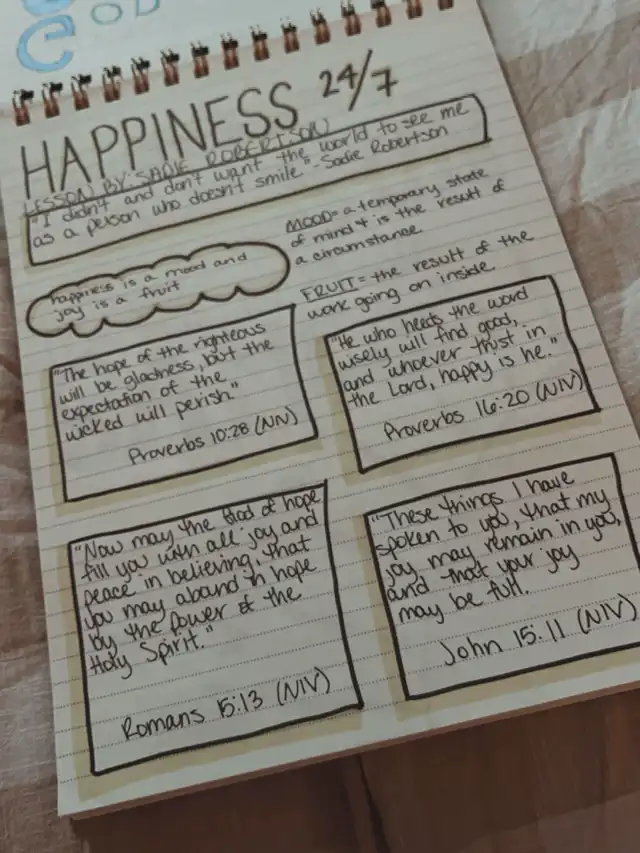 OD
HAPPINESS 24/7
LESSON BY: SADIE ROBERTSON
"I didn't and don't want the world to see me
as a person who doesn't smile." -Sadie Robertson
happiness is a mood and
joy is a fruit
MOOD= a temporary state
of mind & is the result of
a circumstance
FRUIT = the result of the
work going on inside
"The hope of the righteous
will be gladness, but the
expectation of the
wicked will perish."
Proverbs 10:28 (NIV)
"He who heeds the word
wisely will find good,
and whoever trust in
the Lord, happy is he."
Proverbs 16:20 (NIV)
"Now may the God of hope
fill you with all joy and
peace in believing, that
you may abound in hope
by the power of the
Holy Spirit."
Romans 15:13 (NIV)
"These things I have
spoken to you, that my
joy may remain in you,
and that your joy
may be full.
John 15:11 (NIV)